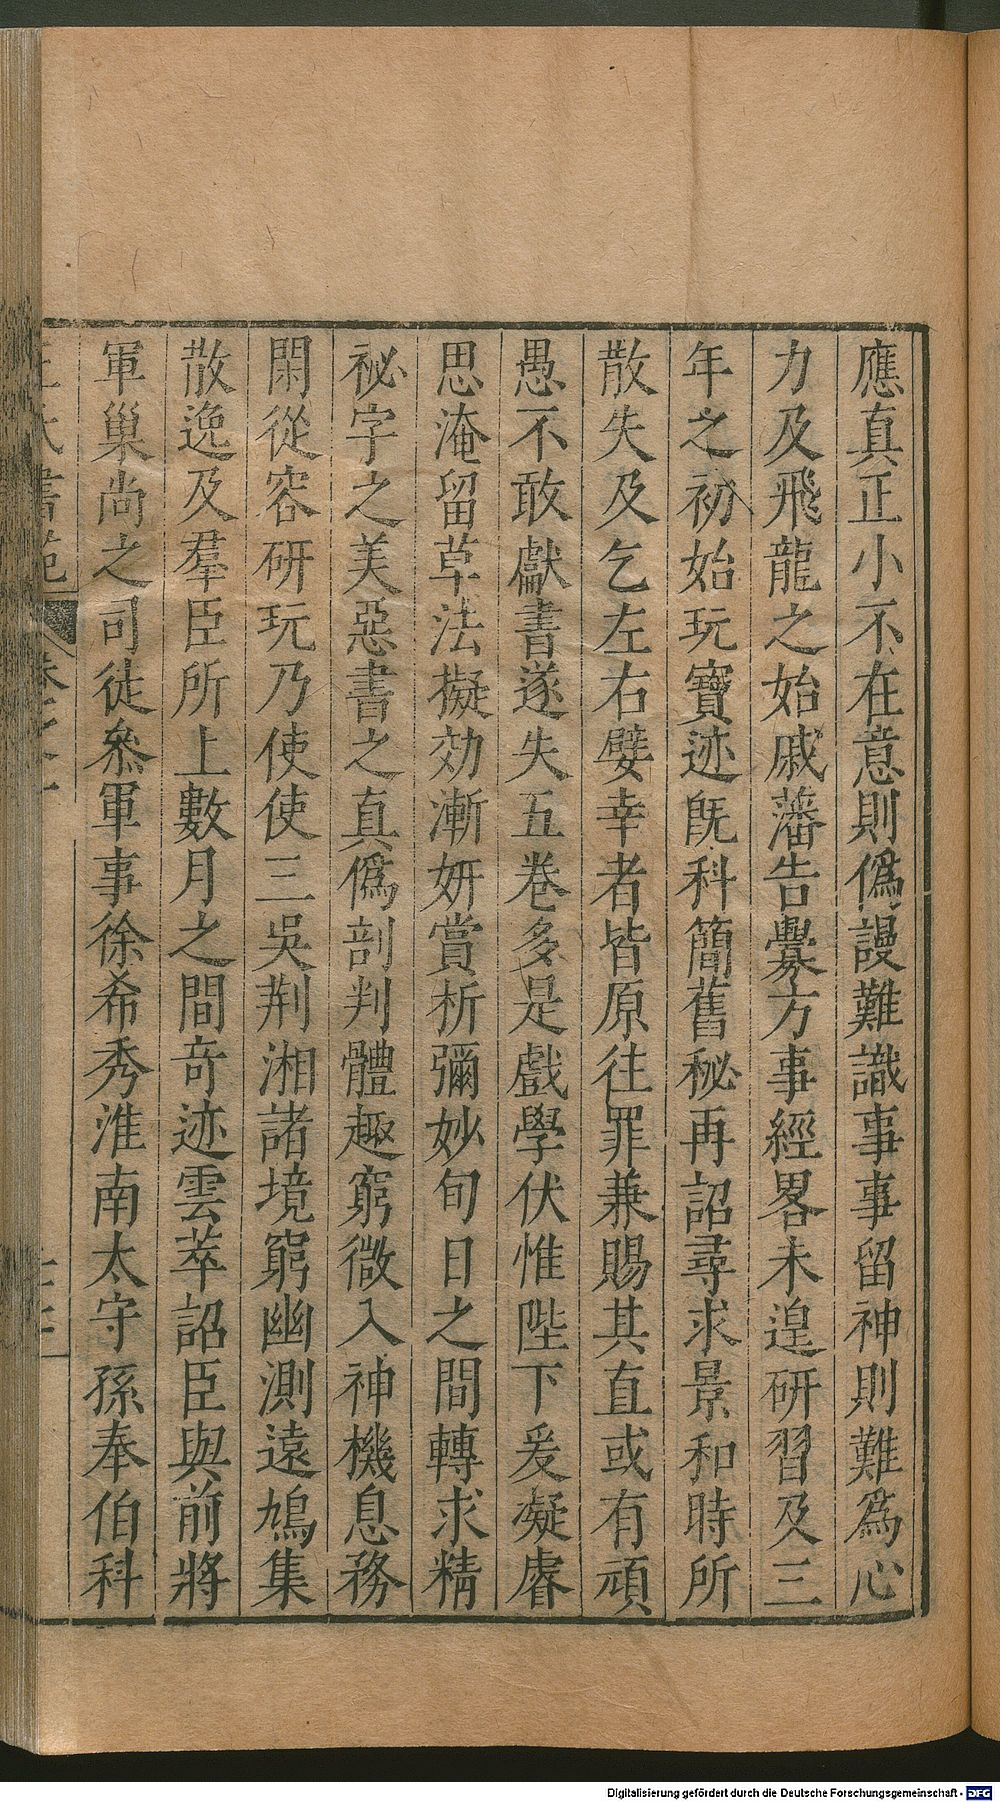 應真正小不在意則僞謾難識事事留神則難爲心
力及飛龍之始戚藩告釁方事經畧未遑研習及三
年之初始玩寶迹旣科簡舊秘再詔尋求景和時所
散失及乞左右嬖幸者皆原往罪兼賜其直或有頑
愚不敢獻書遂失五卷多是戲學伏惟陛下爰凝睿
思淹留草法擬効漸妍賞析彌妙旬日之間轉求精
祕字之美惡書之真僞剖判體趣窮微入神機息務
閑從容研玩乃使使三吳荆湘諸境窮幽測遠鳩集
散逸及羣臣所上數月之間奇迹雲萃詔臣與前將
軍巢尚之司徒叅軍事徐希秀淮南太守孫奉伯科
王氏書苑 卷之
Digitalisierung gefördert durch die Deutsche Forschungsgemeinschaft - DFG